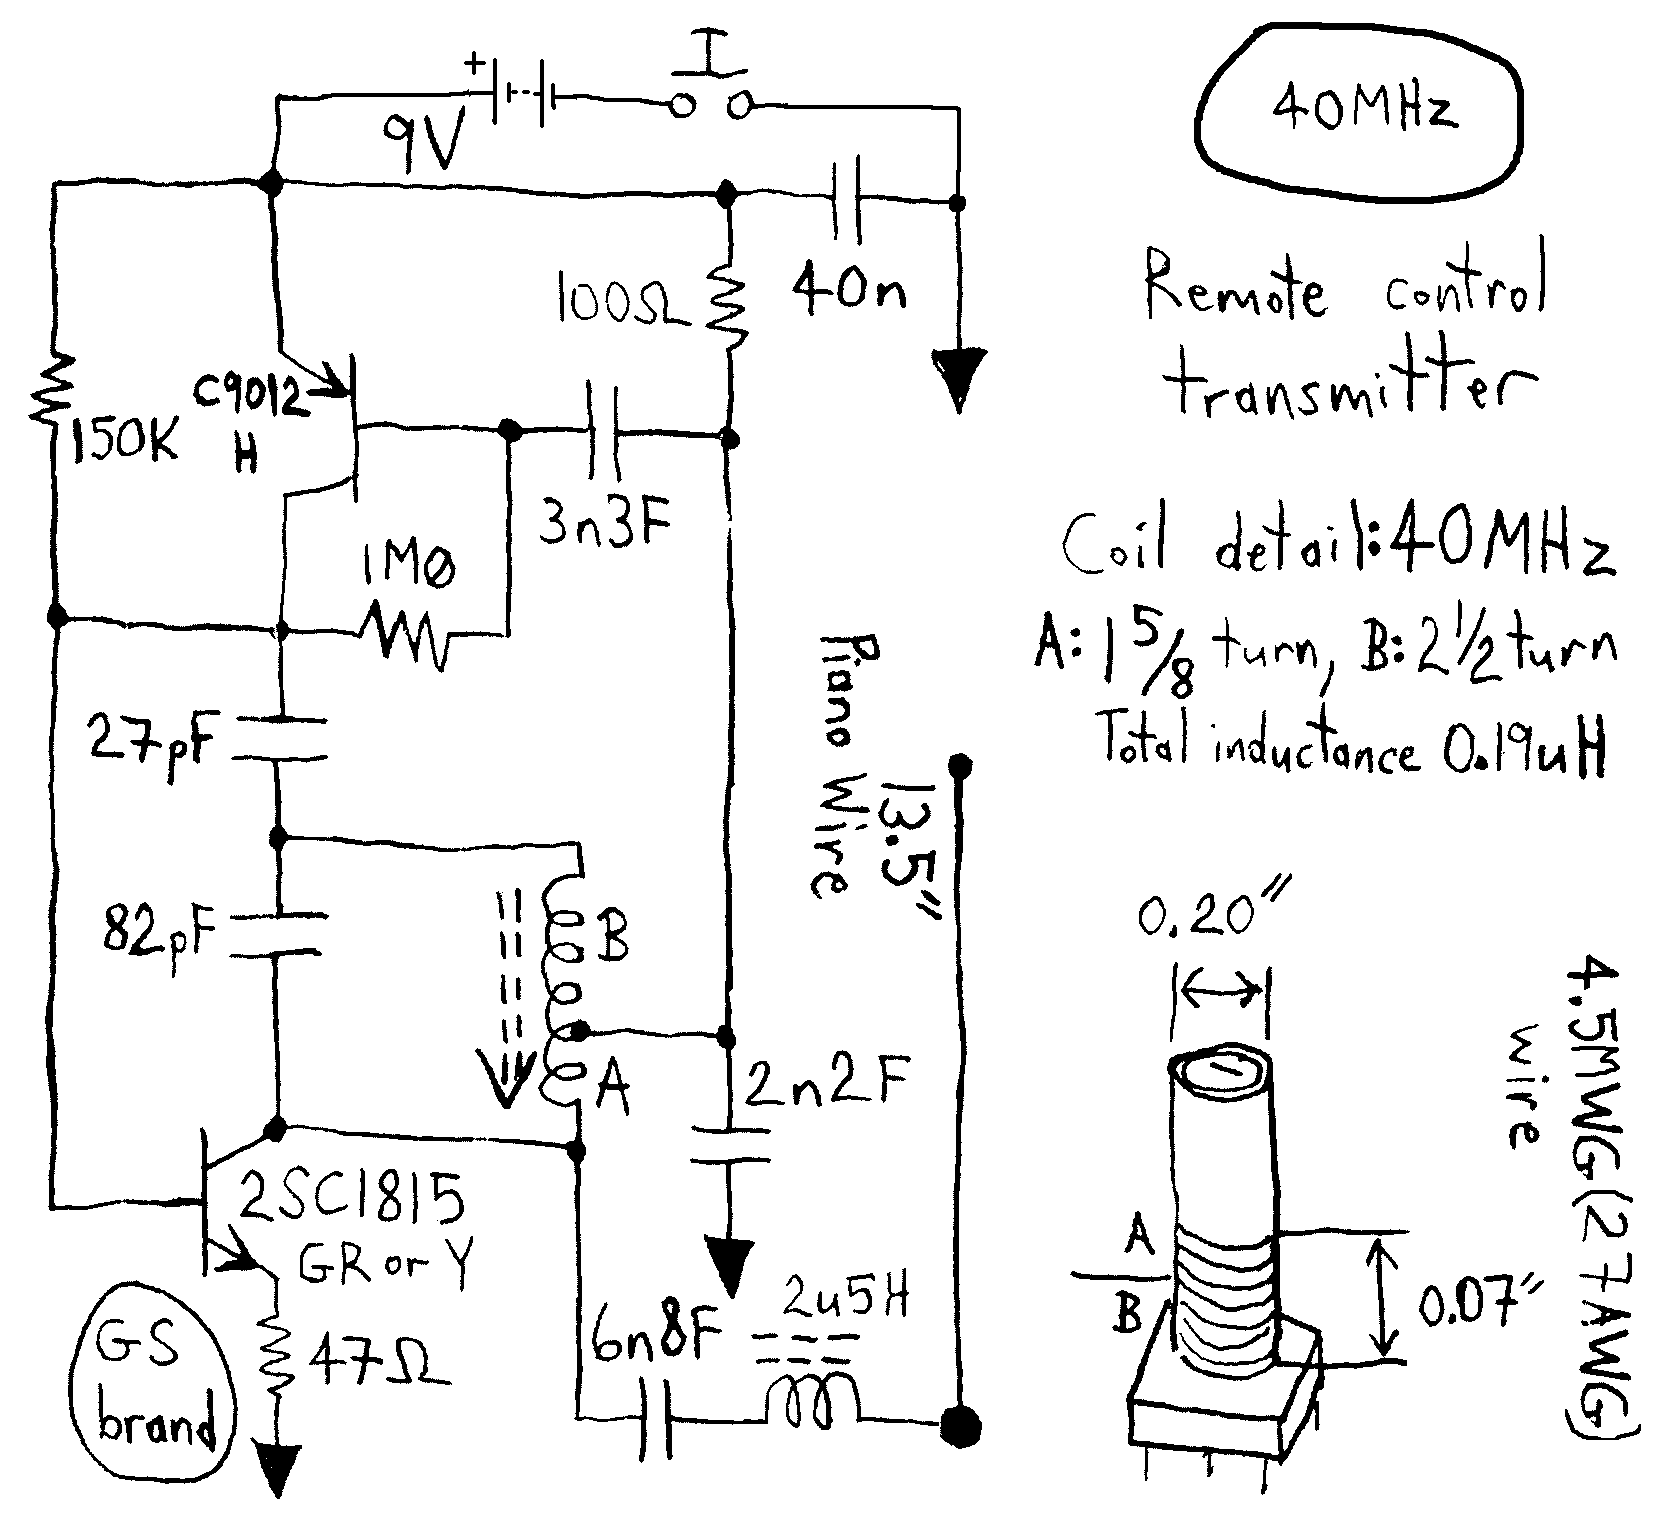 I
+
9V
40MHz
Remote control
transmitter
100Ω
40n
C9012
H
150K
3n3F
1M0
Coil detail:40MHz
A: 1 5/8 turn, B: 2 1/2 turn
Total inductance 0.19uH
27pF
82pF
B
A
Piano Wire
13.5"
2n2F
2SC1815
GR or Y
47Ω
GS
brand
6n8F
2u5H
0.20"
A
B
0.07"
4.5MWG(27AWG)
wire